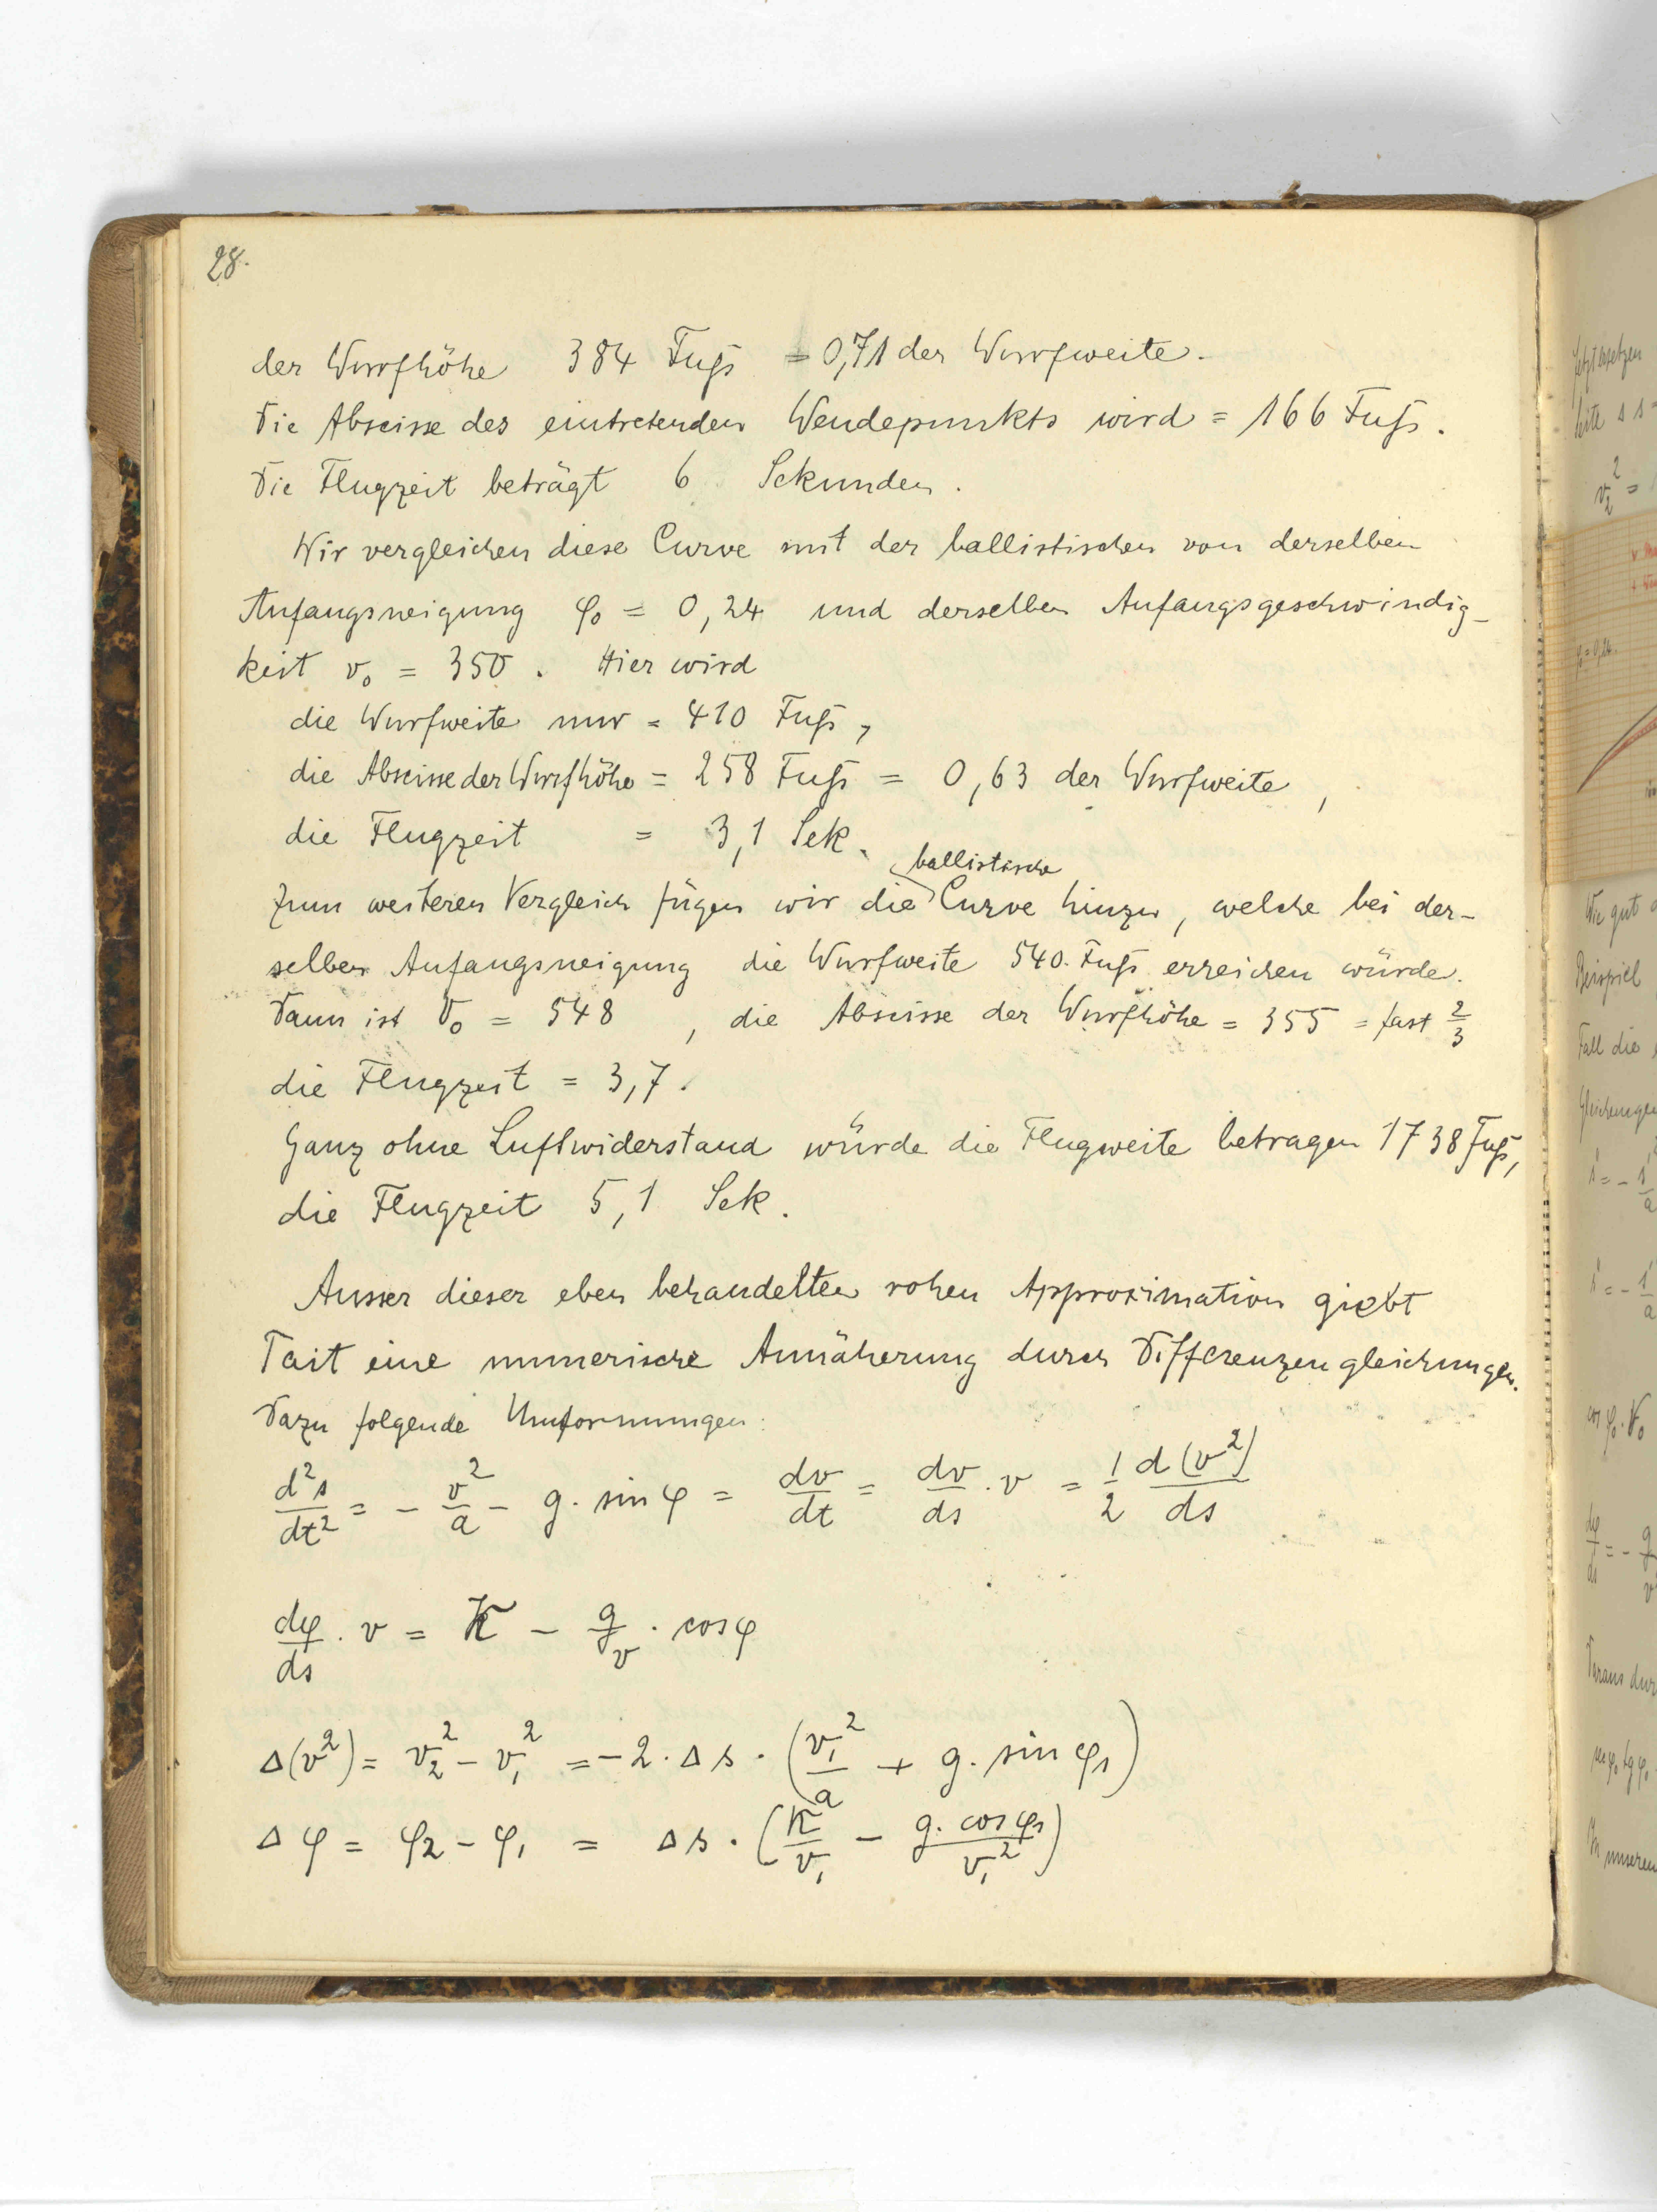 28.
der Wurfhöhe 384 Fuß = 0,71 der Wurfweite.
Die Abscisse des eintretenden Wendepunkts wird = 166 Fuß.
Die Flugzeit beträgt 6 Sekunden.
Wir vergleichen diese Curve mit der ballistischen von derselben
Anfangsneigung φ₀ = 0,24 und derselben Anfangsgeschwindig-
keit v₀ = 350. Hier wird
die Wurfweite nur = 410 Fuß,
die Abscisse der Wurfhöhe = 258 Fuß = 0,63 der Wurfweite,
die Flugzeit = 3,1 Sek.
ballistische
Zum weiteren Vergleich fügen wir die Curve hinzu, welche bei der-
selben Anfangsneigung die Wurfweite 540. Fuß erreichen würde.
Dann ist V₀ = 548, die Abscisse der Wurfhöhe = 355 = fast 2/3
die Flugzeit = 3,7.
Ganz ohne Luftwiderstand würde die Flugweite betragen 1738 Fuß,
die Flugzeit 5,1 Sek.
Ausser dieser eben behandelten rohen Approximation giebt
Tait eine numerische Annäherung durch Differenzengleichungen.
Dazu folgende Umformungen:
d²s/dt² = - v²/a - g. sin φ = dv/dt = dv/ds . v = 1/2 d(v²)/ds
dφ/ds . v = K - g/v . cos φ
Δ(v²) = v₂² - v₁² = -2 . Δs . (v₁²/a + g. sin φ₁)
Δφ = φ₂ - φ₁ = Δs . (K/v₁ - g. cos φ₁/v₁²)
jetzt setzen
v₂² =
φ = 0,24.
Wie gut
Beispiel
Fall die
Gleichungen
cos φ₀ . V₀
dφ/ds = - g/v
Daraus dur
In unserem